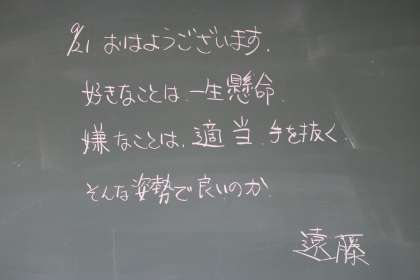 9/21 おはようございます.
好きなことは、一生懸命.
嫌なことは、適当.手を抜く.
そんな姿勢で良いのか.
遠藤